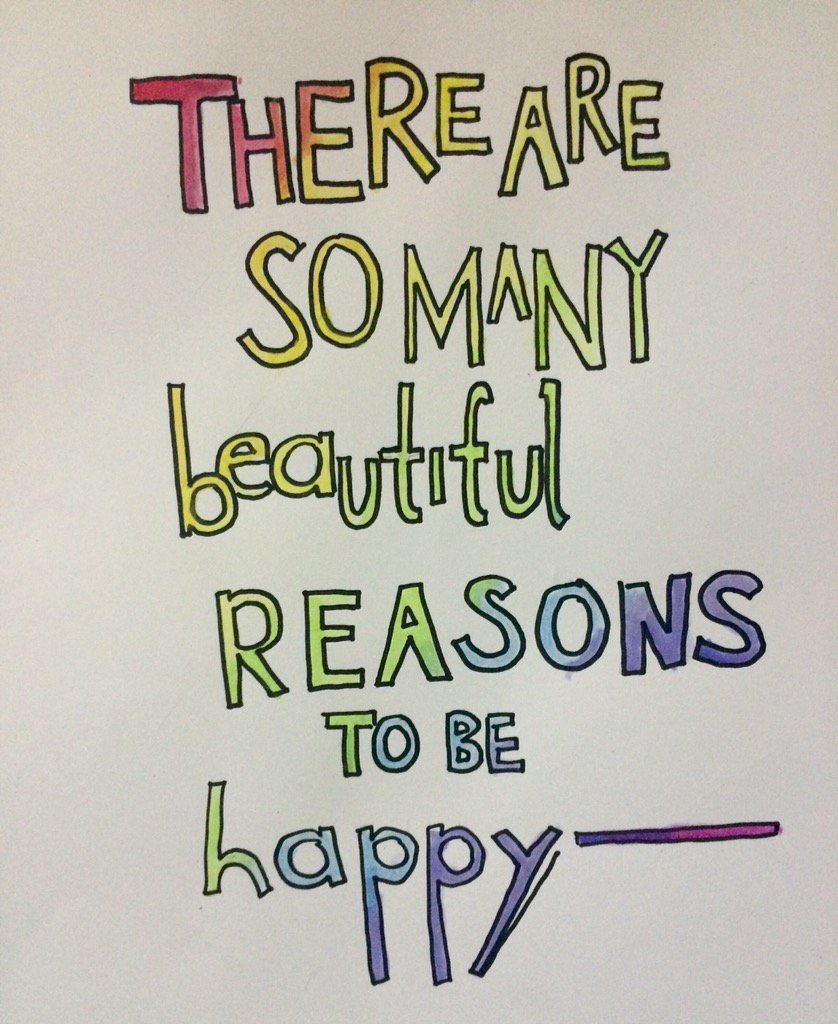 THERE ARE
SO MANY
beautiful
REASONS
TO BE
happy—